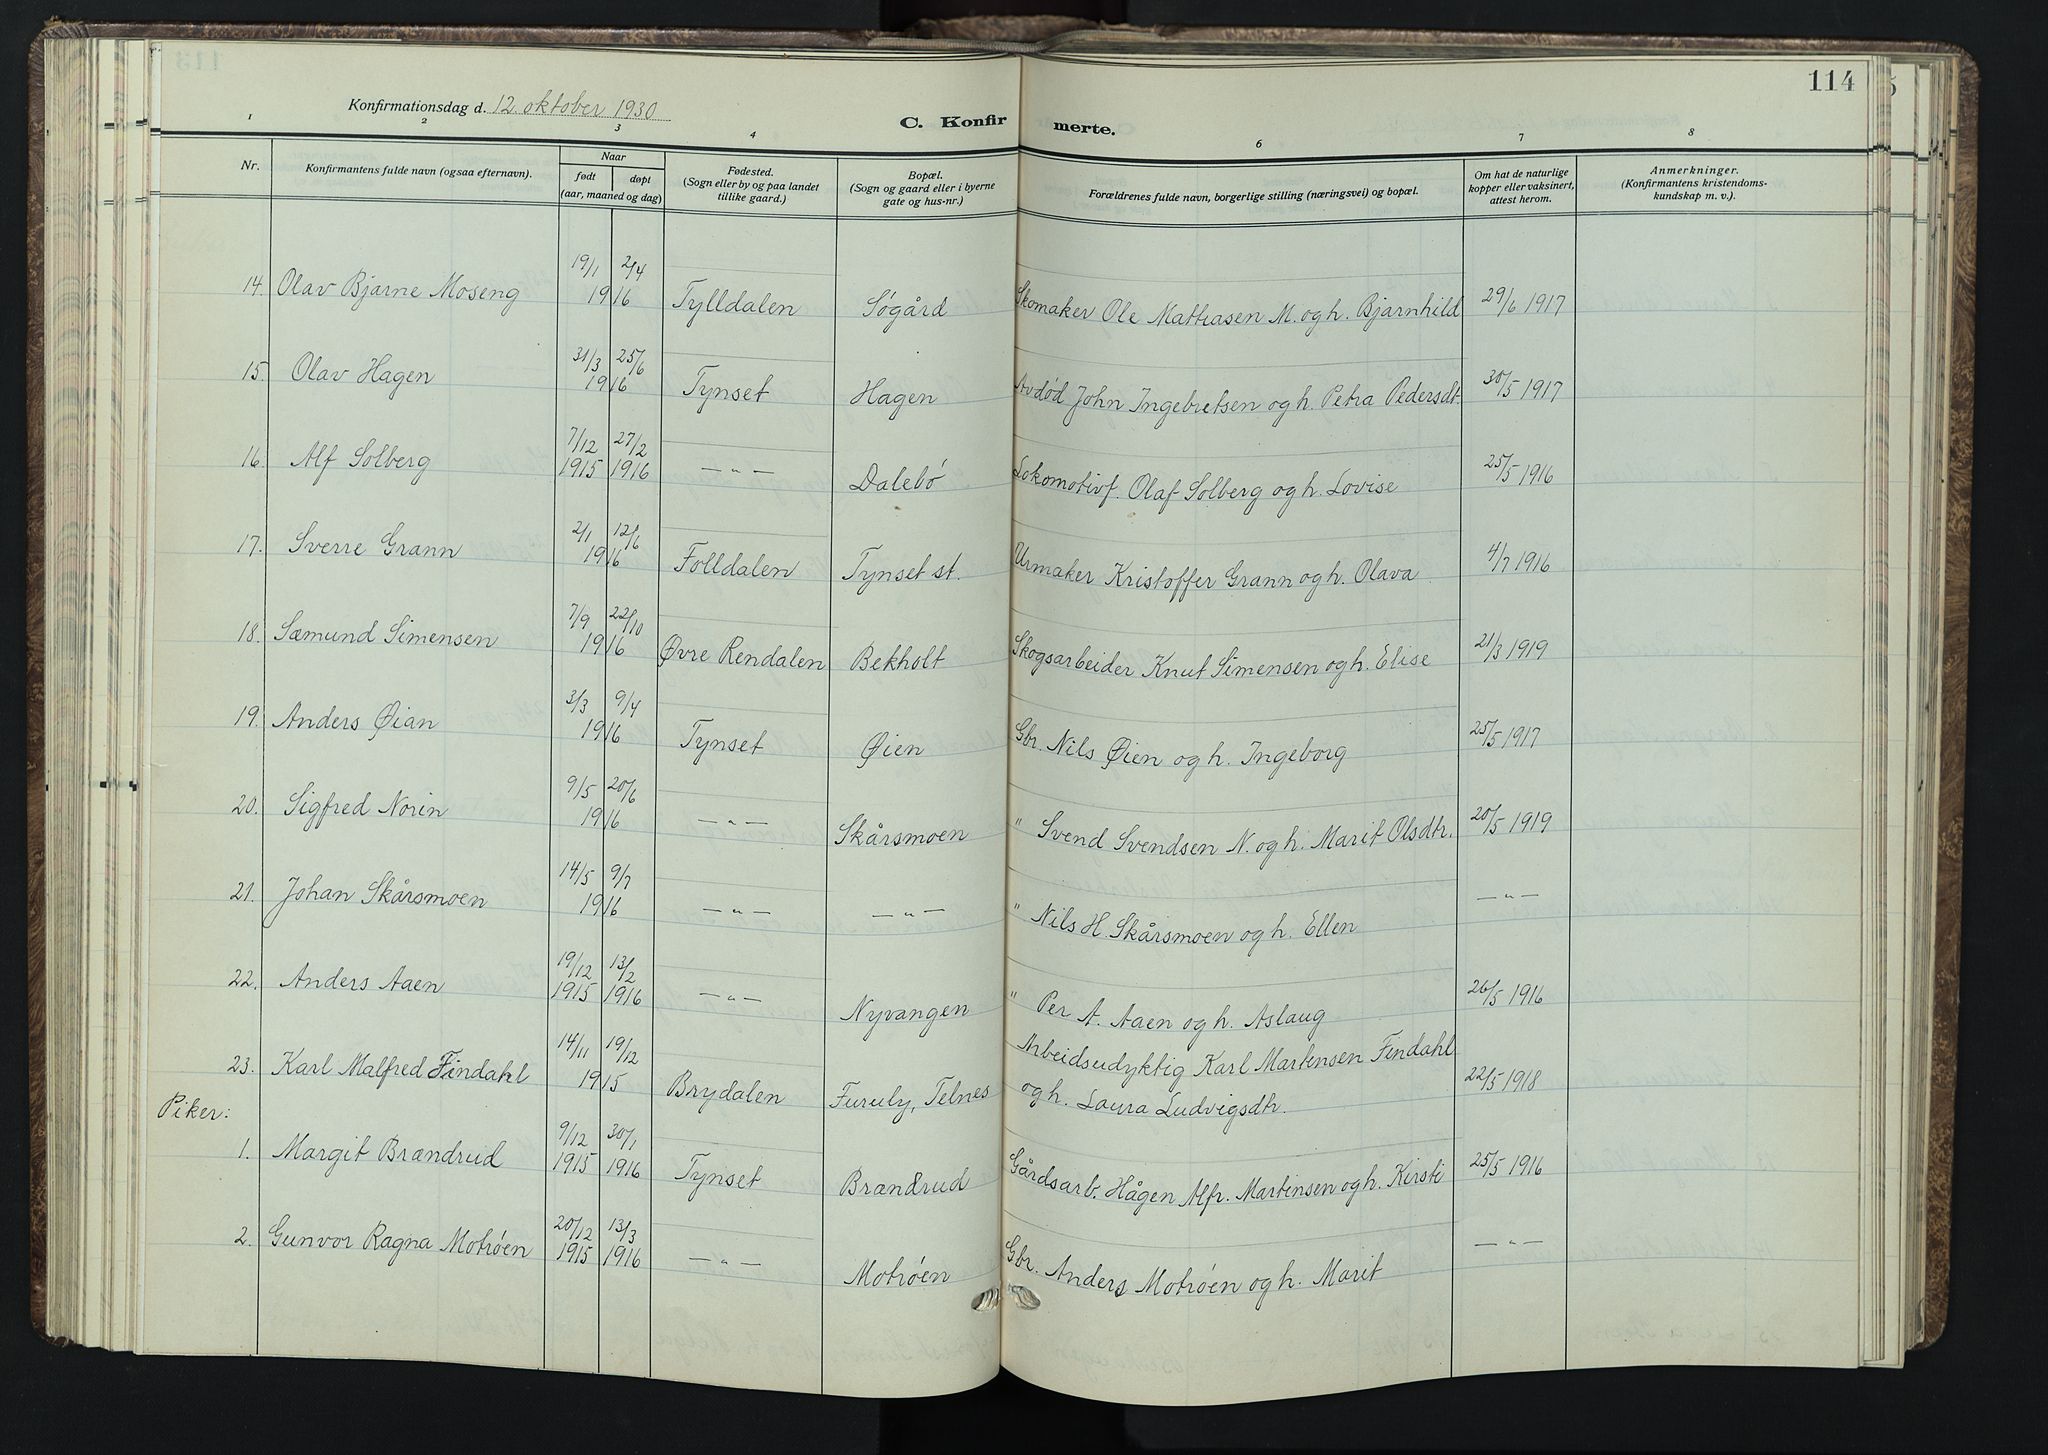 114
Konfirmationsdag d. 12. oktober 1930
C. Konfirmerte.
1 2 3 4 6 7 8
Nr. Konfirmantens fulde navn (ogsaa efternavn). Naar født døpt (aar, maaned og dag) Fødested. (Sogn eller by og paa landet tillike gaard.) Bopæl. (Sogn og gaard eller i byerne gate og hus-nr.) Forældrenes fulde navn, borgerlige stilling (næringsvei) og bopæl. Om hat de naturlige kopper eller vaksinert, attest herom. Anmerkninger. (Konfirmantens kristendomskundskap m. v.).
14. Olav Bjarne Moseng 19/1 2/4 1916 Tylldalen Søgård Skomaker Ole Mathiasen M. og h. Bjarnhild 29/6 1917
15. Olav Hagen 31/3 25/6 1916 Tynset Hagen Avdød John Ingebretsen og h. Petra Pedersdt. 30/5 1917
16. Alf Solberg 7/12 1915 27/2 1916 —"— Dalebó Lokomotivf. Olaf Solberg og h. Lovise 25/5 1916
17. Sverre Grann 2/1 12/6 1916 Folldalen Tynset st. Urmaker Kristoffer Grann og h. Olava 4/7 1916
18. Sæmund Simensen 7/9 22/10 1916 Øvre Rendalen Bekholt Skogsarbeider Knut Simensen og h. Elise 21/3 1919
19. Anders Øian 3/3 9/4 1916 Tynset Øien Gbr. Nils Øien og h. Ingeborg 25/5 1917
20. Sigfred Norin 9/5 20/6 1916 —"— Skårsmoen " Svend Svendsen N. og h. Marit Olsdtr. 20/5 1919
21. Johan Skårsmoen 14/5 9/7 1916 —"— —"— " Nils H. Skårsmoen og h. Ellen —"—
22. Anders Aaen 19/12 1915 13/2 1916 —"— Nyvangen " Per A. Aaen og h. Aslaug 26/5 1916
23. Karl Malfred Findahl 14/11 19/12 1915 Brydalen Furuly, Telnes Arbeidsudyktig Karl Martinsen Findahl og h. Laura Ludvigsdtr. 22/5 1918
Piker:
1. Margit Brændrud 9/12 1915 30/1 1916 Tynset Brændrud Gårdsarb. Hågen Alfr. Martinsen og h. Kirsti 25/5 1916
2. Gunvor Ragna Motrøen 20/12 1915 13/3 1916 —"— Motrøen Gbr. Anders Motrøen og h. Marit —"—